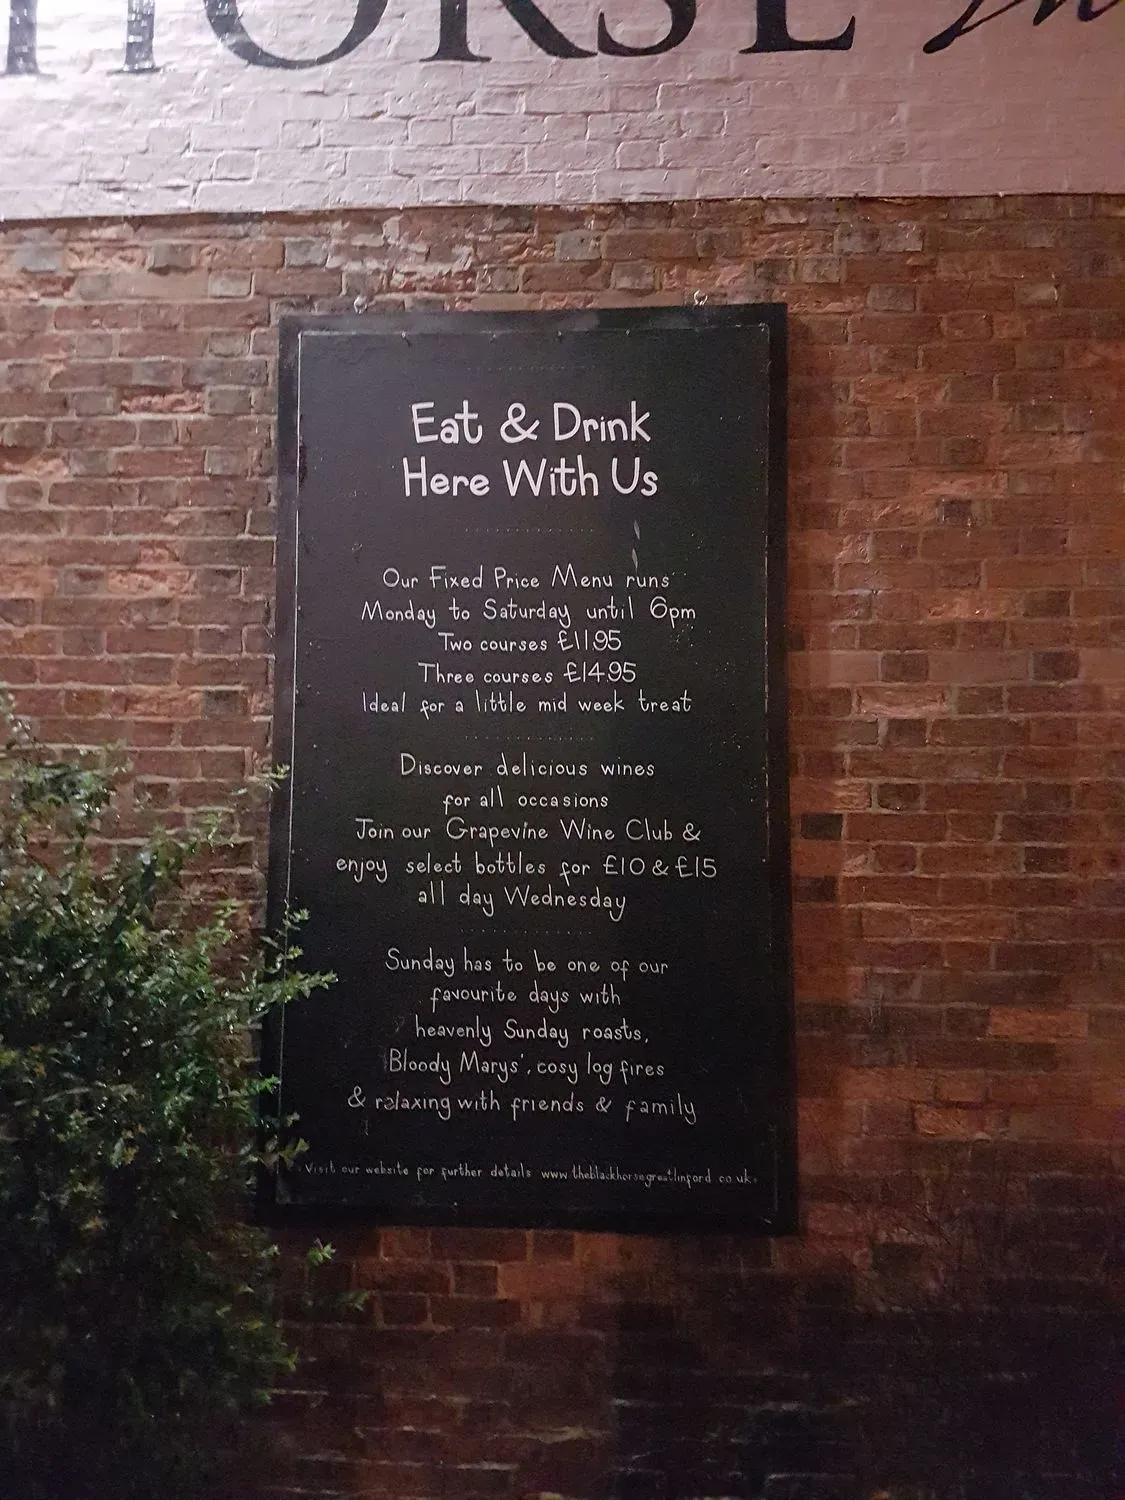 HORSE
Eat & Drink
Here With Us
Our Fixed Price Menu runs
Monday to Saturday until 6pm
Two courses £11.95
Three courses £14.95
Ideal for a little mid week treat
Discover delicious wines
for all occasions
Join our Grapevine Wine Club &
enjoy select bottles for £10 & £15
all day Wednesday
Sunday has to be one of our
favourite days with
heavenly Sunday roasts,
Bloody Marys', cosy log fires
& relaxing with friends & family
Visit our website for further details www.theblackhorsegreatlinford.co.uk